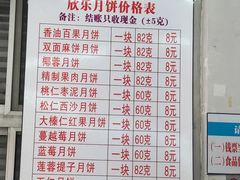 欣乐月饼价格表
备注：结账只收现金（±5克）
香油百果月饼 一块 82克 8元
双面麻饼月饼 一块 82克 8元
椰蓉月饼 一块 82克 8元
精制果肉月饼 一块 82克 8元
桃仁枣泥月饼 一块 60克 8元
松仁西沙月饼 一块 60克 8元
大榛仁红果月饼 一块 60克 8元
蔓越莓月饼 一块 60克 8元
蓝莓月饼 一块 60克 8元
莲蓉提子月饼 一块 82克 8元
(一)钱票
(二)食品